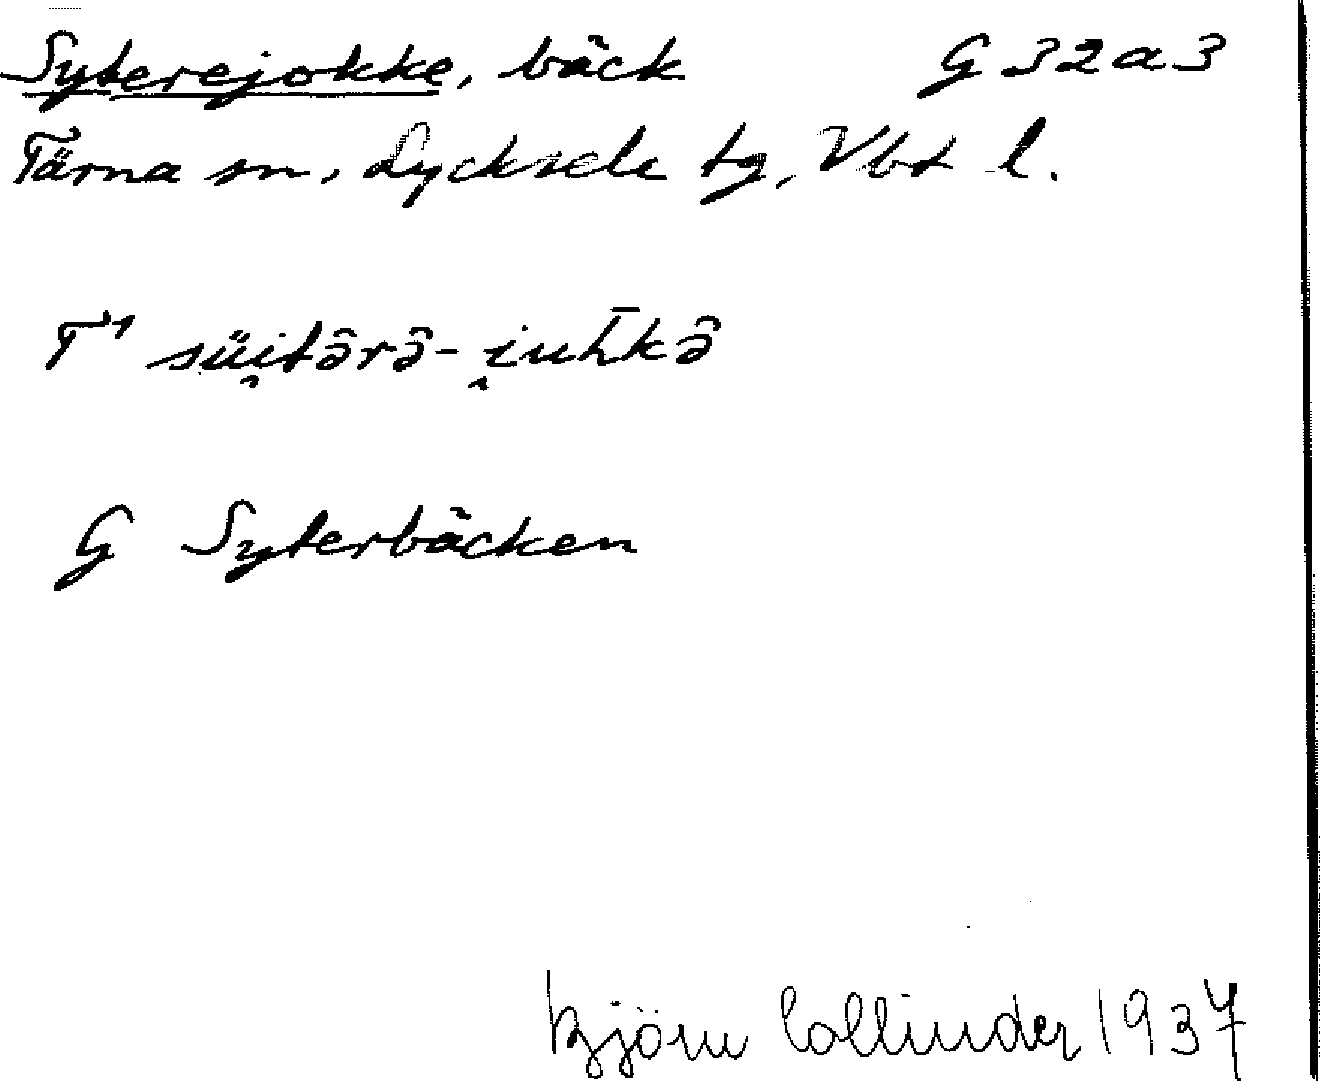 Syterejokke, bäck G 32 a 3
Tärna sn, Lycksele tg, Vbt l.
T¹ süi̯tə̂rə̂-i̯uh̄kə̂
G Syterbäcken
Björn Collinder 1937